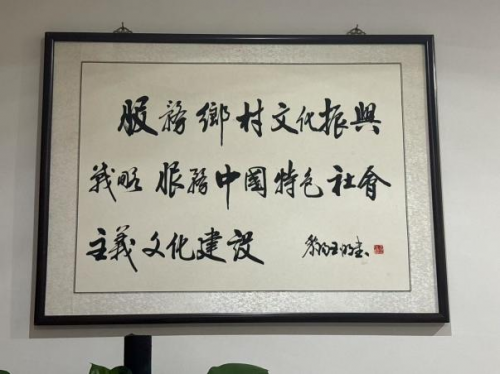 服務鄉村文化振興
戰略 服務中國特色社會
主義文化建設